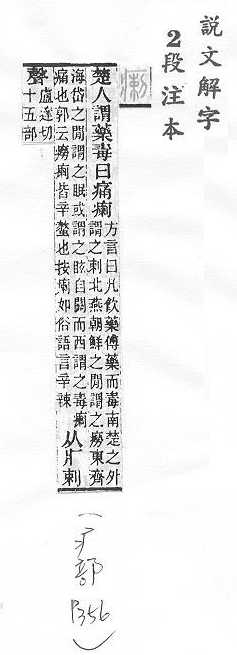 説文解字
2段注本
瘌
楚人謂藥毒曰痛瘌
方言曰凡飲藥傅藥而毒南楚之外
謂之剌北燕朝鮮之閒謂之癆東齊
海岱之閒謂之眠或謂之眩自關而西謂之毒瘌
痛也郭云癆瘌皆辛螫也按瘌如俗語言辛辣
从疒剌
聲
盧達切
十五部
(疒部 P356)